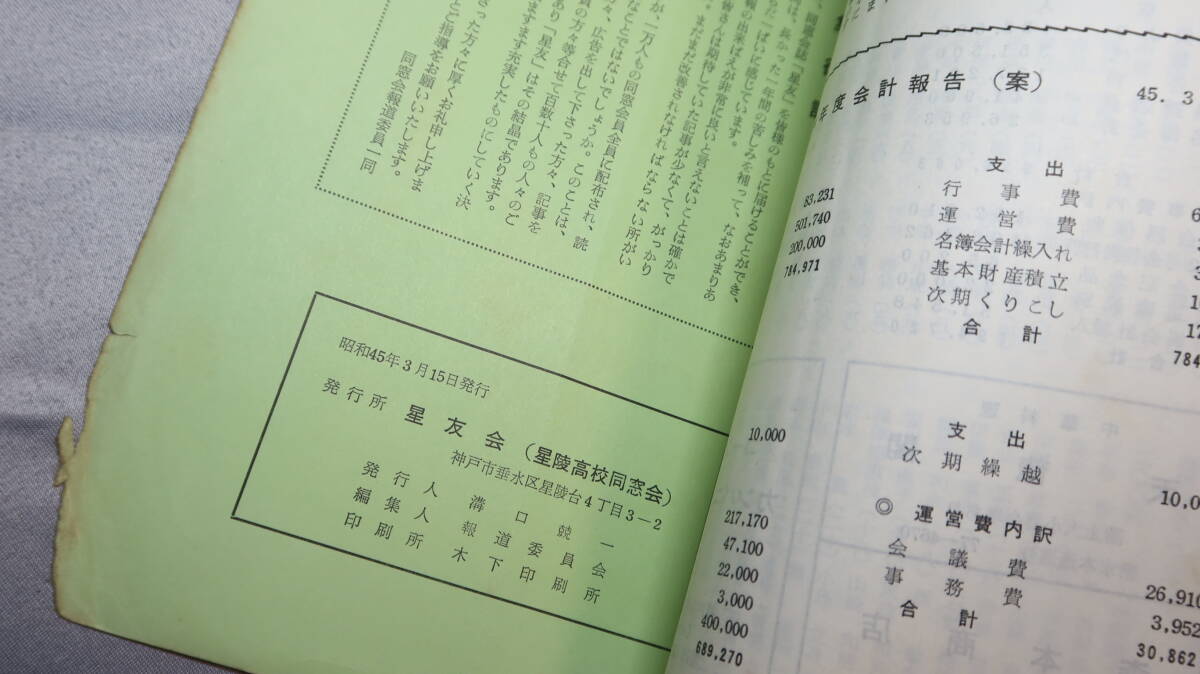 同窓会誌「星友」を皆様のもとに届けることができ、
長かった一年間の苦しみを補って、なおあまりあ
ばいに感じています。
報の出来ばえが非常に良いと言えないことは確かで
皆さんは期待していた記事が少なくて、がっかり
まだまだ改善されなければならない所がい
が、一万人もの同窓会員全員に配布され、読
なことではないでしょうか。このことは、
方々、広告を出して下さった方々、記事を
員の方々等合せて百数十人もの人々のご
あり「星友」はその結晶であります。
ますます充実したものにしていく決
さった方々に厚くお礼申し上げま
とご指導をお願いいたします。
同窓会報道委員一同
昭和45年3月15日発行
発行所 星友会(星陵高校同窓会)
神戸市垂水区星陵台4丁目3-2
発行人 溝口競一
編集人 報道委員会
印刷所 木下印刷所
年度会計報告(案)
45. 3
支出
83,231 行事費
501,740 運営費
200,000 名簿会計繰入れ
784,971 基本財産積立
次期くりこし
合計 784
支出
10,000 次期繰越 10,0
◎ 運営費内訳
217,170 会議費 26,910
47,100 事務費 3,952
22,000 合計 30,862
3,000
400,000
689,270